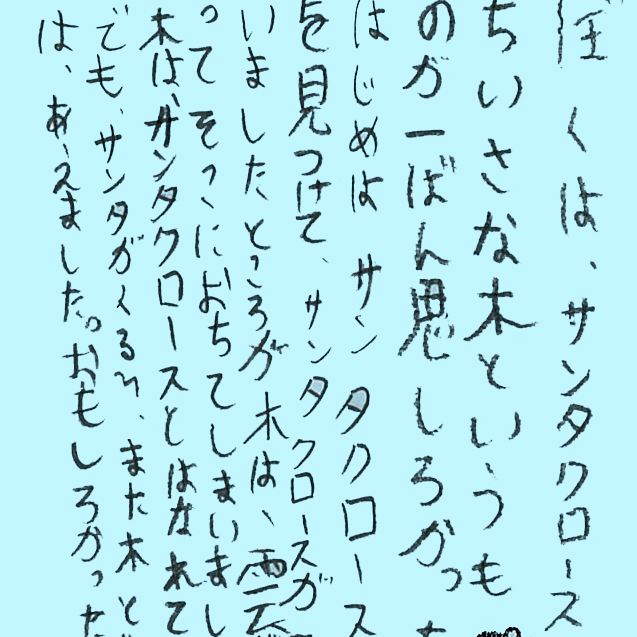 くは、サンタクロース
ちいさな木というも
のが一ばん思しろかった
はじめは サンタクロース
を見つけて、サンタクロースが
いましたところが木は、雲
ってそっこにおちてしまいまし
木は、サンタクロースとはなれて
でも、サンタがくるい、また木と
は、あ、えました。おもしろかった